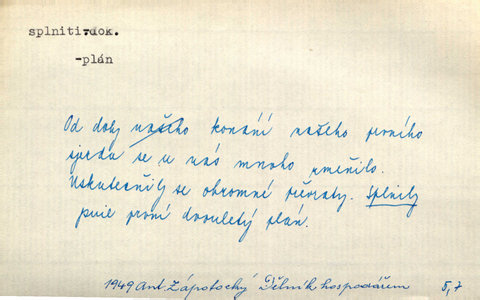 splniti-dok.
-plán
Od doby našeho konání našeho prvního
sjezdu se u nás mnoho změnilo.
Uskutečnily se ohromné převraty. Splnily
jsme první dvouletý plán.
1949 Ant. Zápotocký Dělník hospodářem 5,7